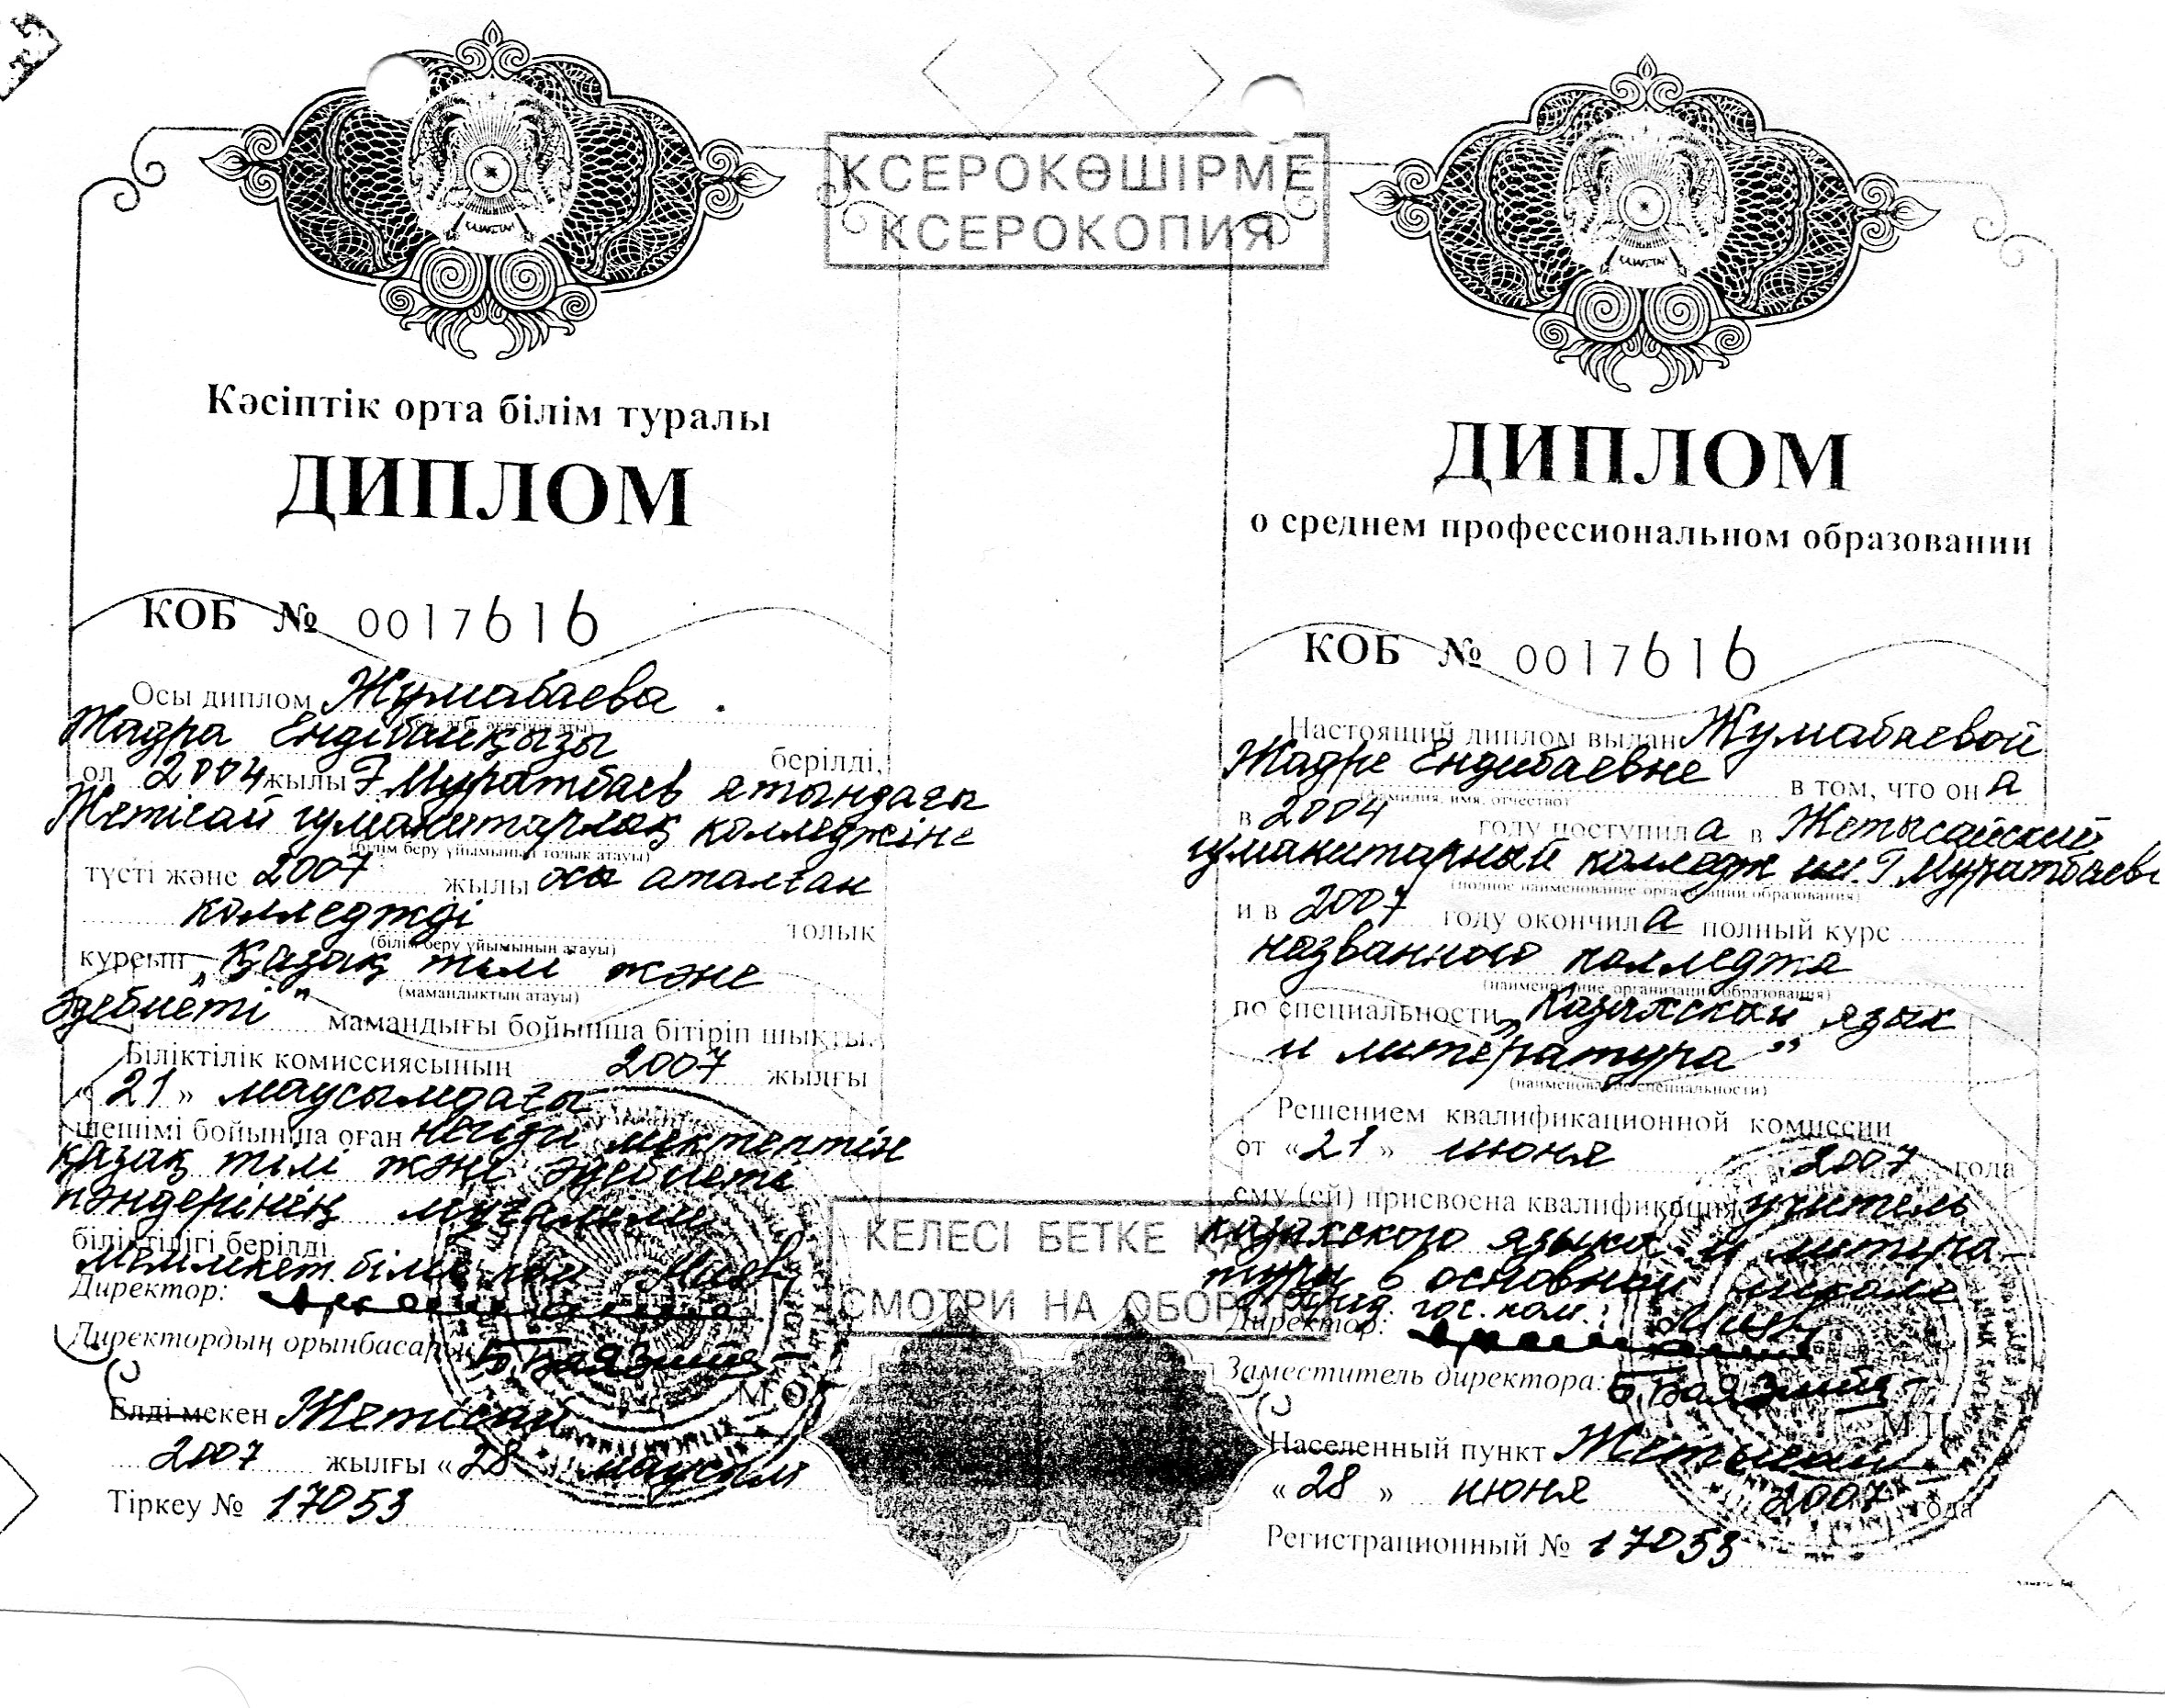 КСЕРОКӨШІРМЕ
КСЕРОКОПИЯ
Кәсіптік орта білім туралы
ДИПЛОМ
КОБ № 0017616
Осы диплом Жумабаева
(тегі, аты, әкесінің аты)
Жадра Ендібайқызы берілді,
ол 2004 жылы Ғ Муратбаев атындағы
Жетісай гуманитарлық колледжіне
(білім беру ұйымының толық атауы)
түсті және 2007 жылы осы аталған
колледжді толық
(білім беру ұйымының атауы)
курсын „Қазақ тілі және
(мамандықтың атауы)
әдебиеті" мамандығы бойынша бітіріп шықты.
Біліктілік комиссиясының 2007 жылғы
«21» маусымдағы
шешімі бойынша оған негізгі мектептің
қазақ тілі және әдебиеті
пәндерінің мұғалімі
біліктілігі берілді.
Директор:
Директордың орынбасары:
М О
Елді мекен Жетісай
2007 жылғы «28» маусым
Тіркеу № 17053
ДИПЛОМ
о среднем профессиональном образовании
КОБ № 0017616
Настоящий диплом выдан Жумабаевой
Жадре Ендибаевне в том, что он а
(фамилия, имя, отчество)
в 2004 году поступил а в Жетысайский
гуманитарный колледж им. Г Муратбаева
(полное наименование организации образования)
и в 2007 году окончил а полный курс
названного колледжа
(наименование организации образования)
по специальности „Казахский язык
и литература"
(наименование специальности)
Решением квалификационной комиссии
от «21» июня 2007 года
ему (ей) присвоена квалификация учитель
казахского языка и литера-
туры в основной школе
Пред. гос. ком.:
Директор:
Заместитель директора:
М П
Населенный пункт Жетысай
«28» июня 2007 года
Регистрационный № 17053
КЕЛЕСІ БЕТКЕ ҚАРА
СМОТРИ НА ОБОРОТЕ